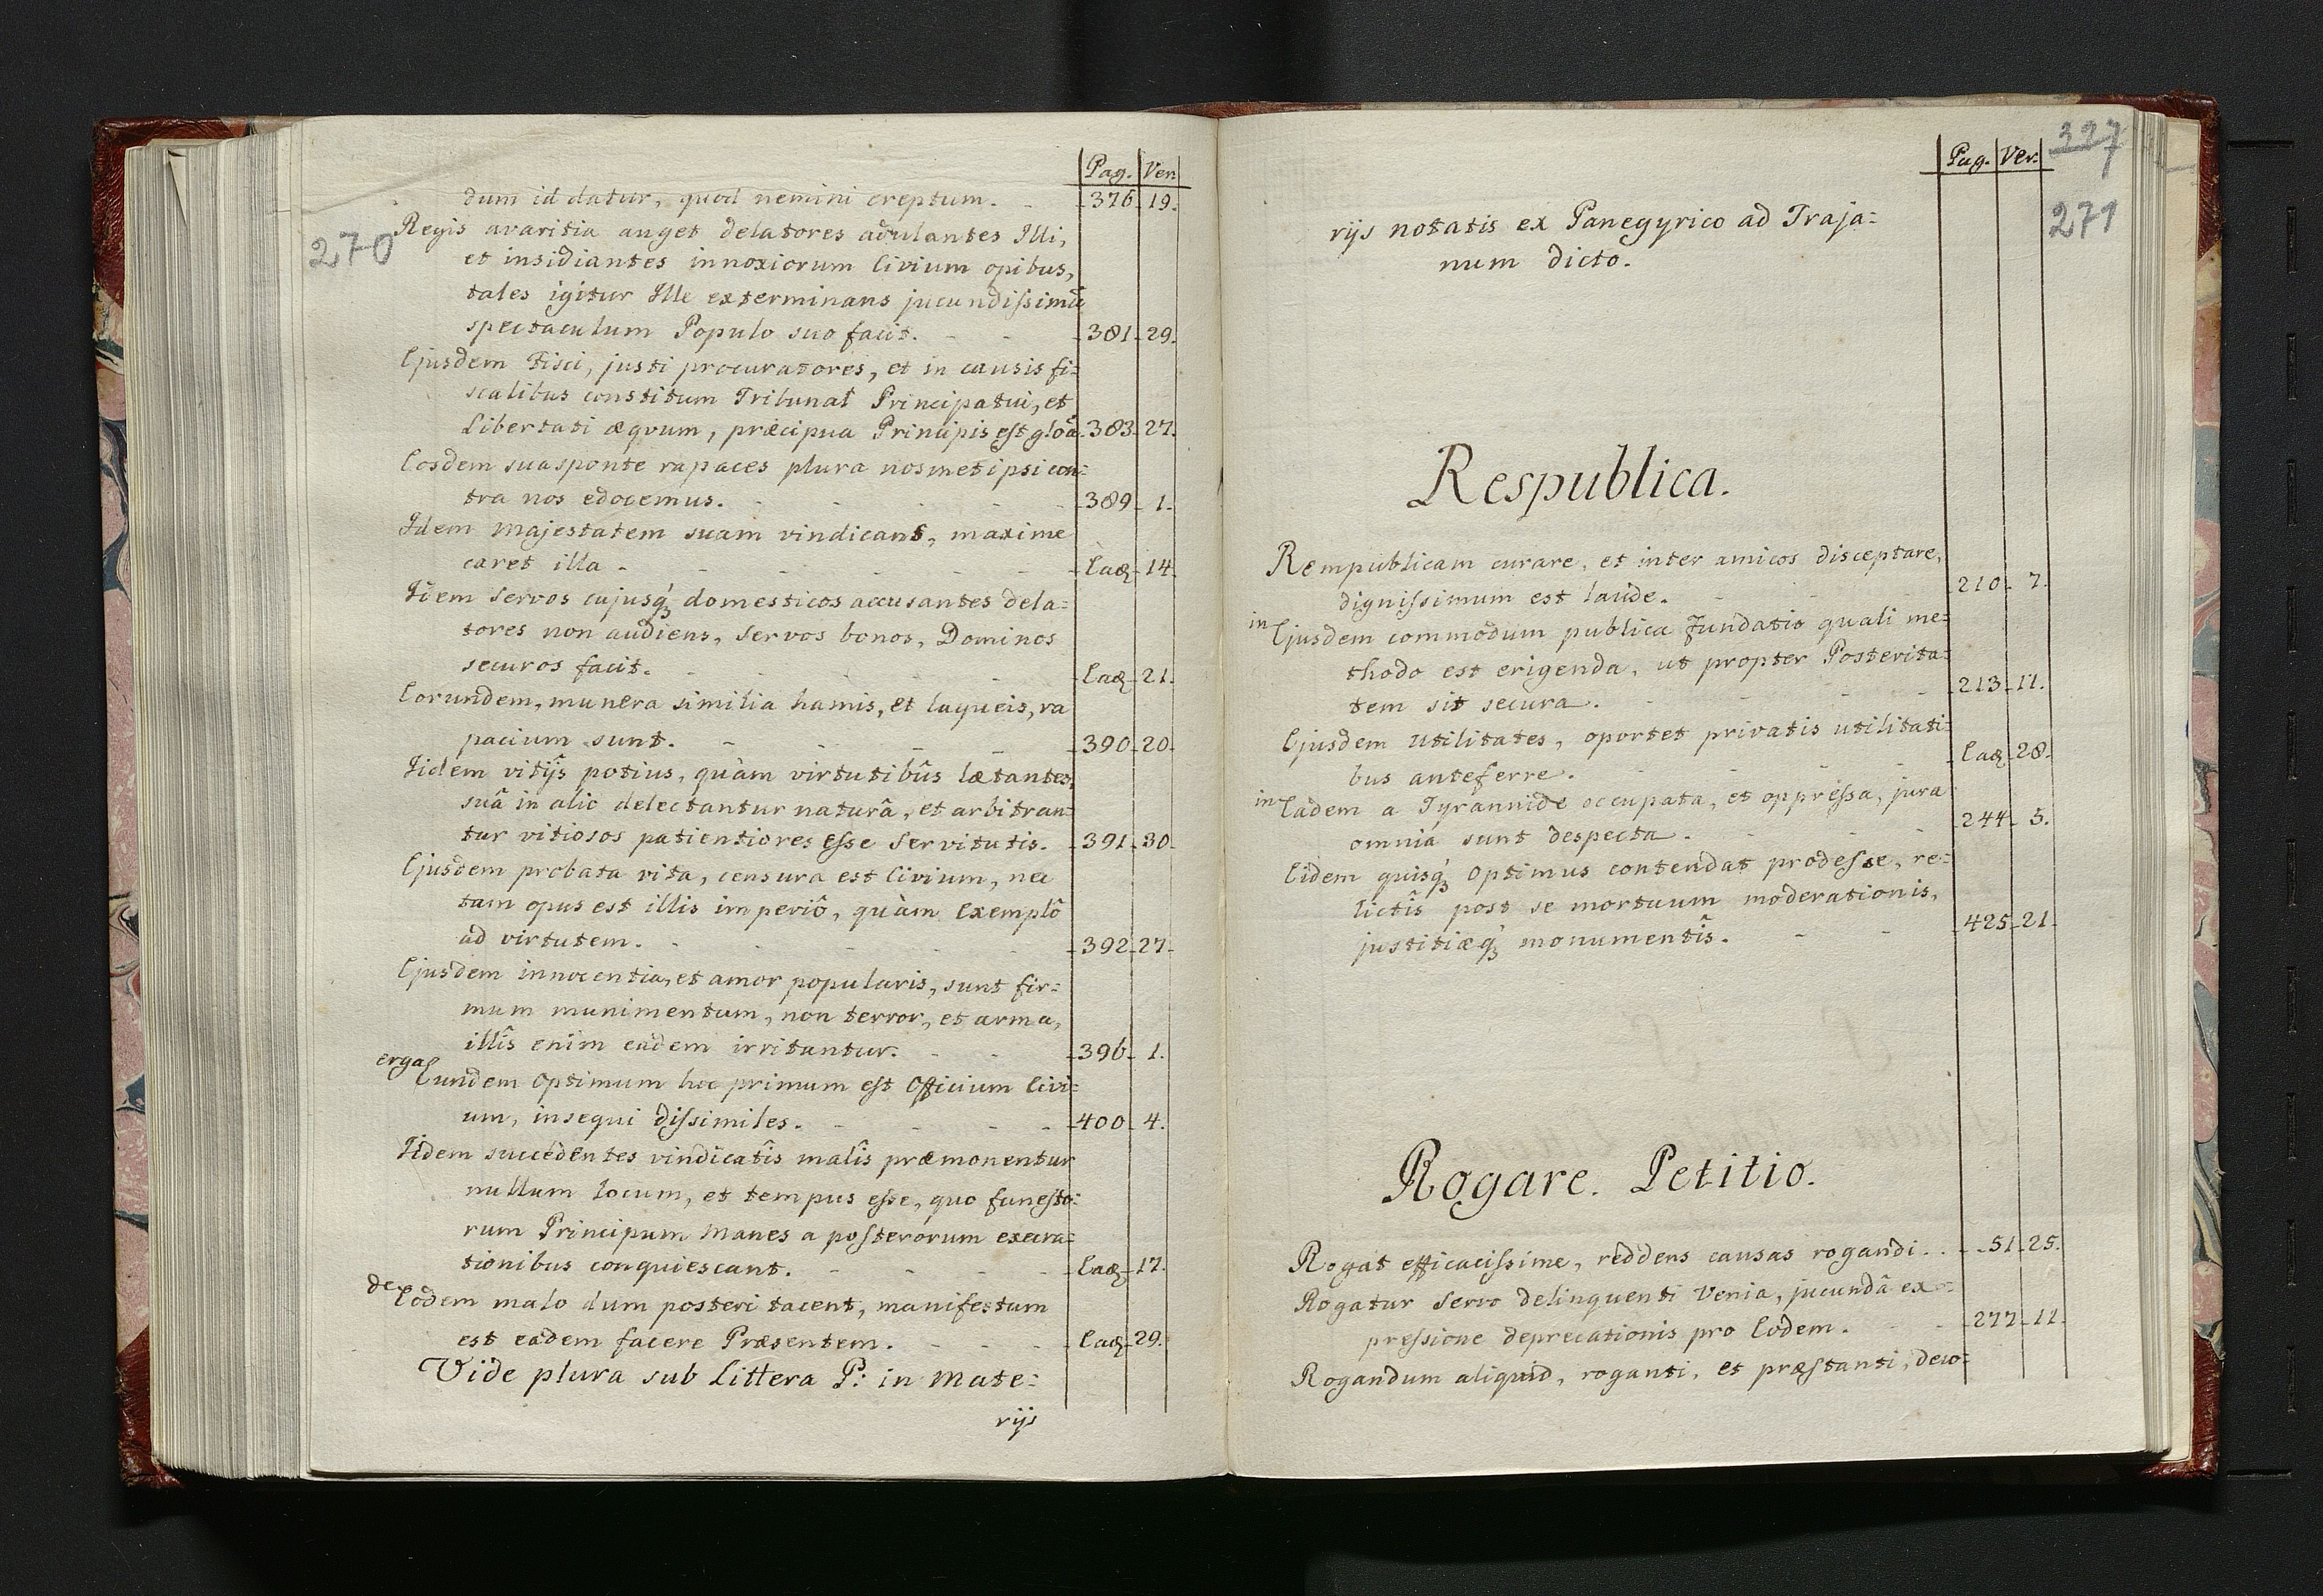 Pag. Ver.
dum id datur, quod nemini ereptum. 376. 19.
270
Regis avaritia auget delatores adulantes Illi,
et insidiantes innoxiorum Civium opibus,
tales igitur Ille exterminans jucundissimū
spectaculum Populo suo facit. 381. 29.
Ejusdem Fisci, justi procuratores, et in causis fi=
scalibus constitum Tribunal Principatui, et
Libertati æqvum, præcipua Principis est gloā. 383. 27.
Eosdem suasponte rapaces plura nosmetipsi con=
tra nos edocemus. 389. 1.
Idem Majestatem suam vindicans, maxime
caret illa. Eaꝗ 14.
Idem servos cujusq́ꝫ domesticos accusantes dela=
tores non audiens, servos bonos, Dominos
securos facit. Eaꝗ 21.
Eorundem, munera similia hamis, et laqueis, ra
pacium sunt. 390. 20.
Iidem vitijs potius, quàm virtutibûs lætantes,
suâ in alio delectantur naturâ, et arbitran=
tur vitiosos patientiores esse servitutis. 391. 30.
Ejusdem probata vita, censura est Civium, nec
tam opus est illis imperiô, quàm Exemplô
ad virtutem. 392. 27.
Ejusdem innocentia, et amor popularis, sunt fir=
mum munimentum, non terror, et arma,
illîs enim eadem irritantur. 396. 1.
erga Eundem Optimum hoc primum est Officium Civi=
um, insequi dissimiles. 400. 4.
Iidem succedentes vindicatîs malîs præmonentur
nullum locum, et tempus esse, quo funesto=
rum Principum Manes a posterorum execra=
tionibus conquiescant. Eaꝗ 17.
de Eodem malo dum posteri tacent, manifestum
est eadem facere Præsentem. Eaꝗ 29.
Vide plura sub Littera P: in Mate=
rijs
Pag. Ver.
327
271
rijs notatis ex Panegyrico ad Traja=
num dicto.
Respublica.
Rempublicam curare, et inter amicos disceptare,
dignissimum est laude. 210. 7.
in Ejusdem commodum publica Fundatio quali me=
thodo est erigenda, ut propter Posterita=
tem sit secura. 213. 11.
Ejusdem Utilitates, oportet privatis utilitati=
bus anteferre. Eaꝗ 28.
in Eadem a Tyrannide occupata, et oppressa, jura
omnia sunt despecta. 244. 5.
Eidem quisq́ꝫ Optimus contendat prodesse, re=
lictîs post se mortuum moderationis,
justitiæq́ꝫ monumentîs. 425. 21.
Rogare. Petitio.
Rogat efficacissime, reddens causas rogandi. 51. 25.
Rogatur servo delinquenti Venia, jucundâ ex=
pressione deprecationis pro Eodem. 277. 11.
Rogandum aliquid, roganti, et præstanti, deco=